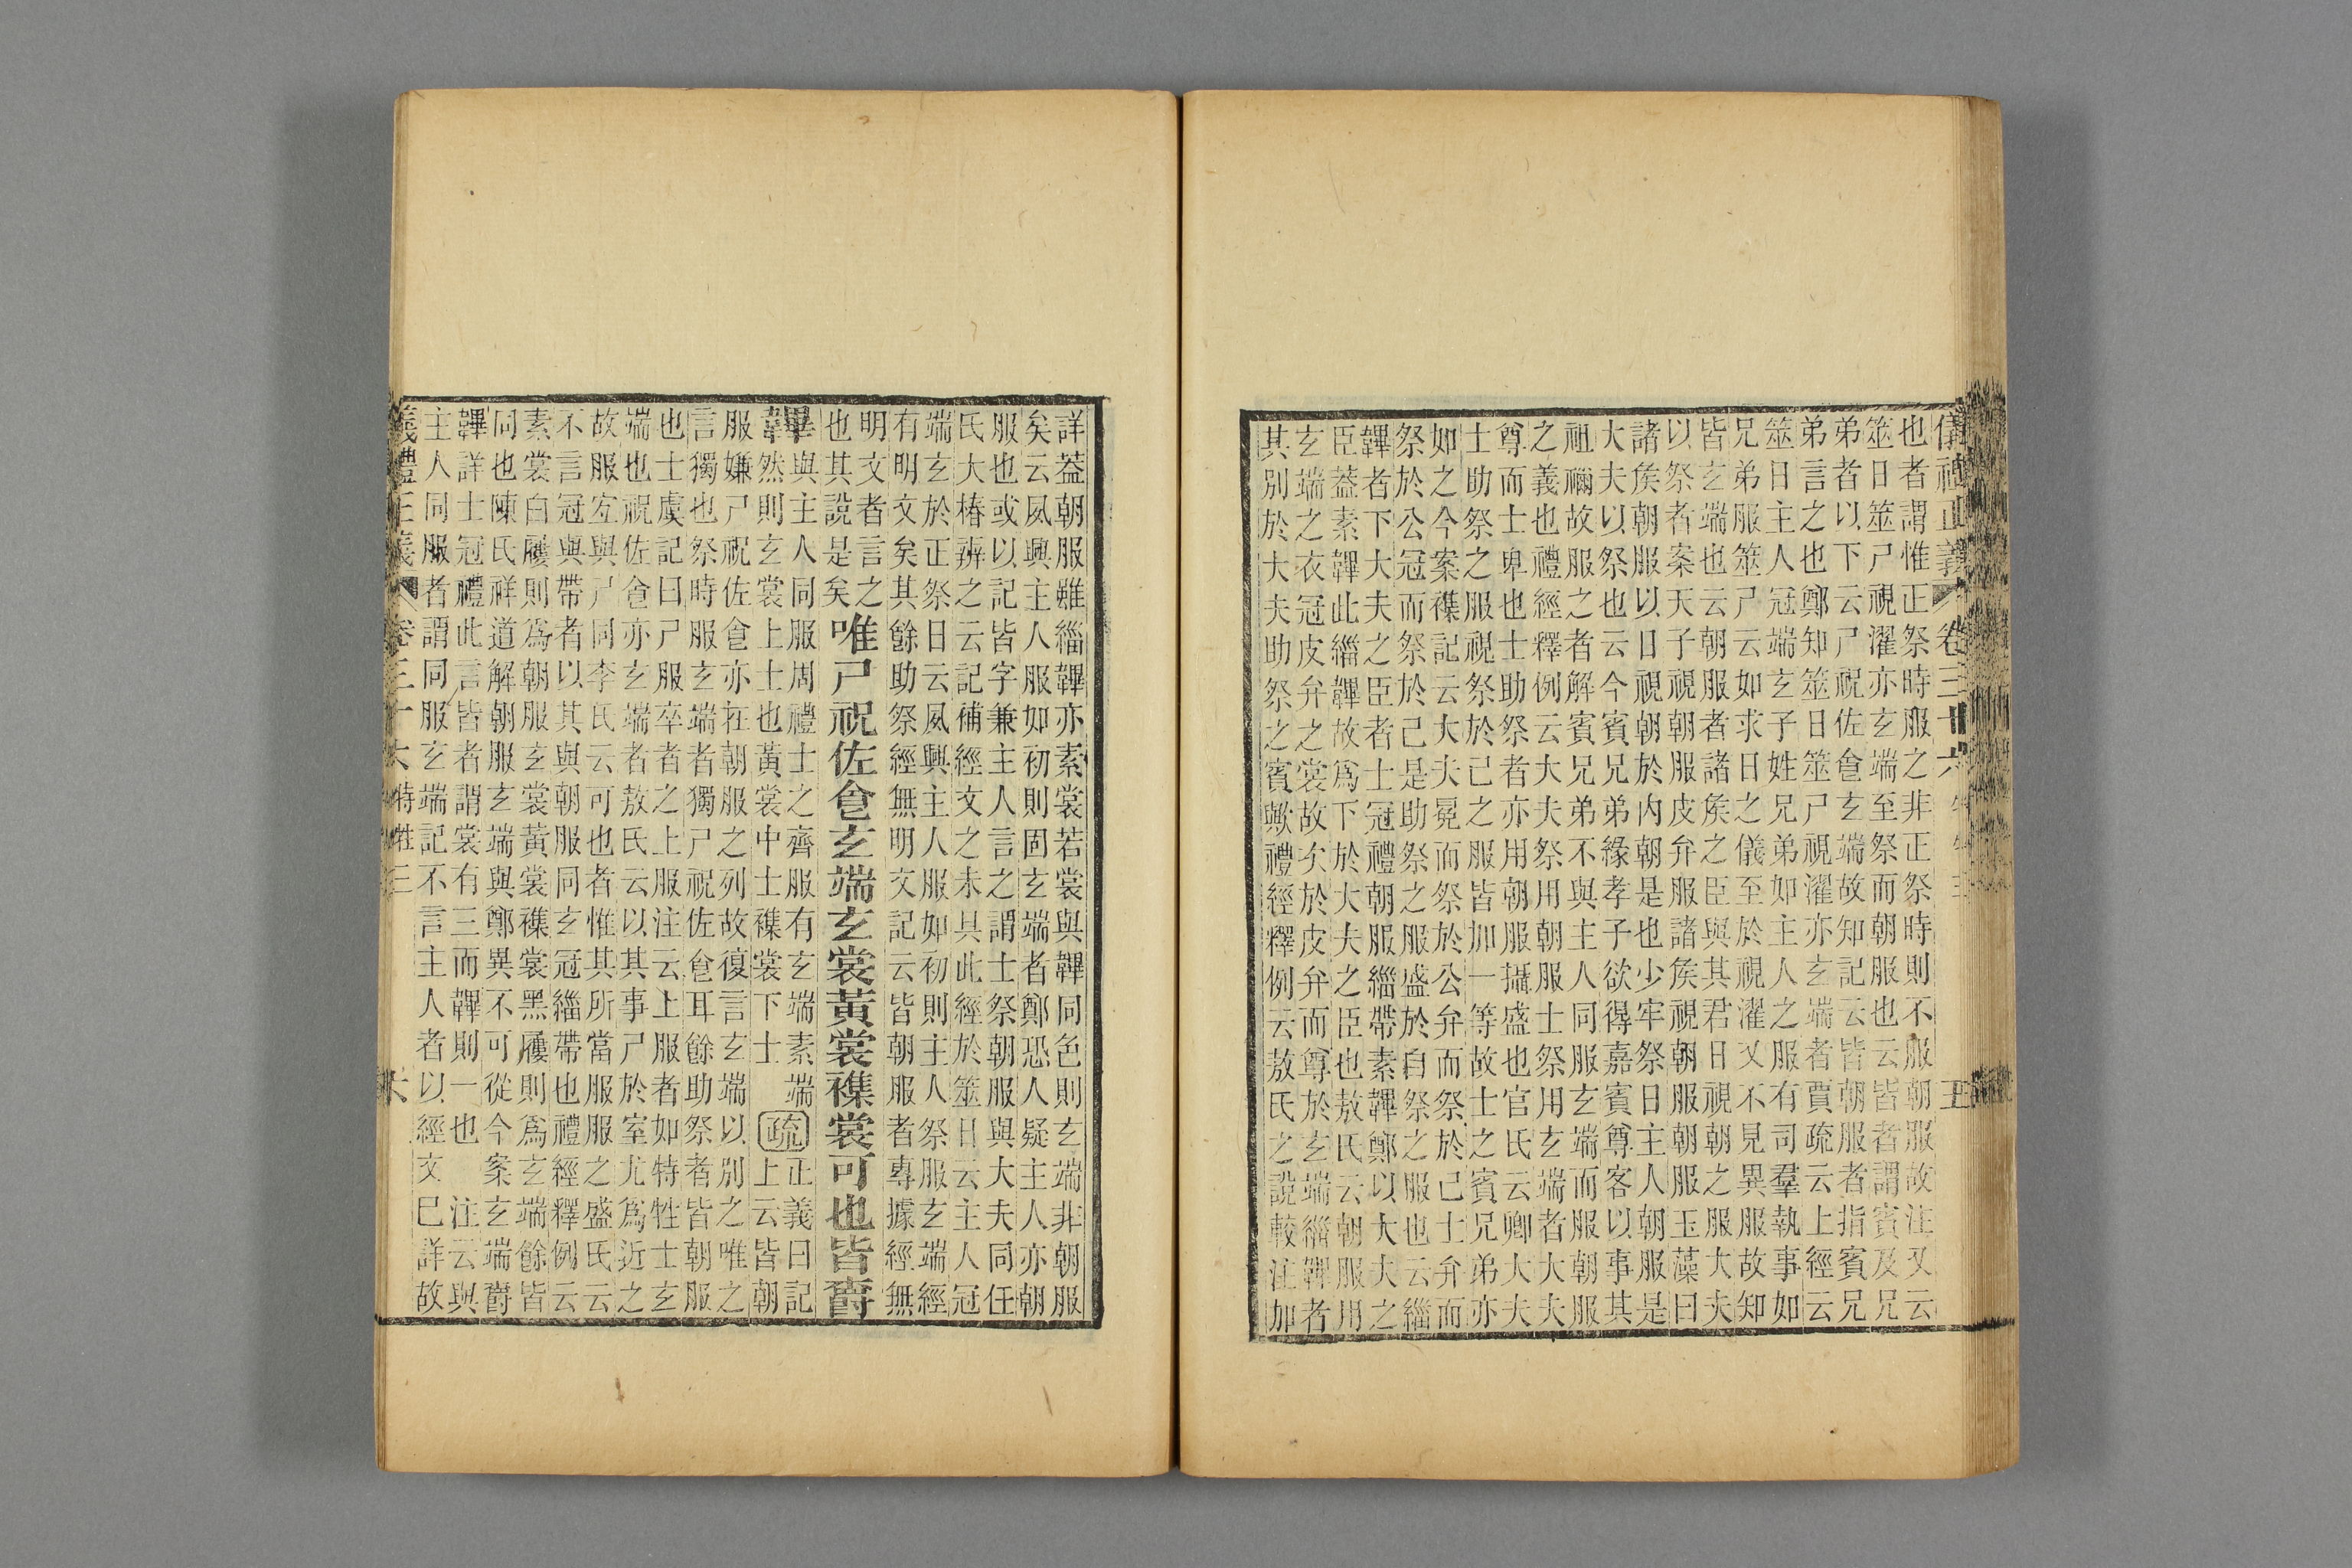 儀禮正義 卷三十六 特牲三 五
也者謂惟正祭時服之非正祭時則不服朝服故注又云
筮日筮尸視濯亦玄端至祭而朝服也云皆者謂賓及兄
弟者以下云尸祝佐食玄端故知記云皆朝服者指賓兄
弟言之也鄭知筮日筮尸視濯亦玄端者賈疏云上經云
筮日主人冠端玄子姓兄弟如主人之服有司羣執事如
兄弟服筮尸云如求日之儀至於視濯又不見異服故知
皆玄端也云朝服者諸矦之臣與其君日視朝之服大夫
以祭者案天子視朝服皮弁服諸矦視朝服朝服玉藻曰
諸矦朝服以日視朝於內朝是也少牢祭日主人朝服是
大夫以祭也云今賓兄弟緣孝子欲得嘉賓尊客以事其
祖禰故服之者解賓兄弟不與主人同服玄端而服朝服
之義也禮經釋例云大夫祭用朝服士祭用玄端者大夫
尊而士卑也士助祭者亦用朝服攝盛也官氏云卿大夫
士助祭之服視祭於己之服皆加一等故士之賓兄弟亦
如之今案襍記云大夫冕而祭於公弁而祭於己士弁而
祭於公冠而祭於己是助祭之服盛於自祭之服也云緇
韠者下大夫之臣者士冠禮朝服緇帶素韠鄭以大夫之
臣葢素韠此緇韠故爲下於大夫之臣也敖氏云朝服用
玄端之衣冠皮弁之裳故次於皮弁而尊於玄端緇韠者
其別於大夫助祭之賓歟禮經釋例云敖氏之說較注加
詳葢朝服雖緇韠亦素裳若裳與韠同色則玄端非朝服
矣云夙興主人服如初則固玄端者鄭恐人疑主人亦朝
服也或以記皆字兼主人言之謂士祭朝服與大夫同任
氏大椿辨之云記補經文之未具此經於筮日云主人冠
端玄於正祭日云夙興主人服如初則主人祭服玄端經
有明文矣其餘助祭經無明文記云皆朝服者專據經無
明文者言之
也其說是矣
唯尸祝佐食玄端玄裳黃裳襍裳可也皆爵
韠
與主人同服周禮士之齊服有玄端素端
然則玄裳上士也黃裳中士襍裳下士
疏
正義曰記
上云皆朝
服嫌尸祝佐食亦在朝服之列故復言玄端以別之唯之
言獨也祭時服玄端者獨尸祝佐食耳餘助祭者皆朝服
也士虞記曰尸服卒者之上服注云上服者如特牲士玄
端也祝佐食亦玄端者敖氏云以其事尸於室尤爲近之
故服宐與尸同李氏云可也者惟其所當服服之盛氏云
不言冠與帶者以其與朝服同玄冠緇帶也禮經釋例云
素裳白屨則爲朝服玄裳黃裳襍裳黑屨則爲玄端餘皆
同也陳氏祥道解朝服玄端與鄭異不可從今案玄端爵
韠詳士冠禮此言皆者謂裳有三而韠則一也 注云與
主人同服者謂同服玄端記不言主人者以經文已詳故
儀禮正義 卷三十六 特牲三 六